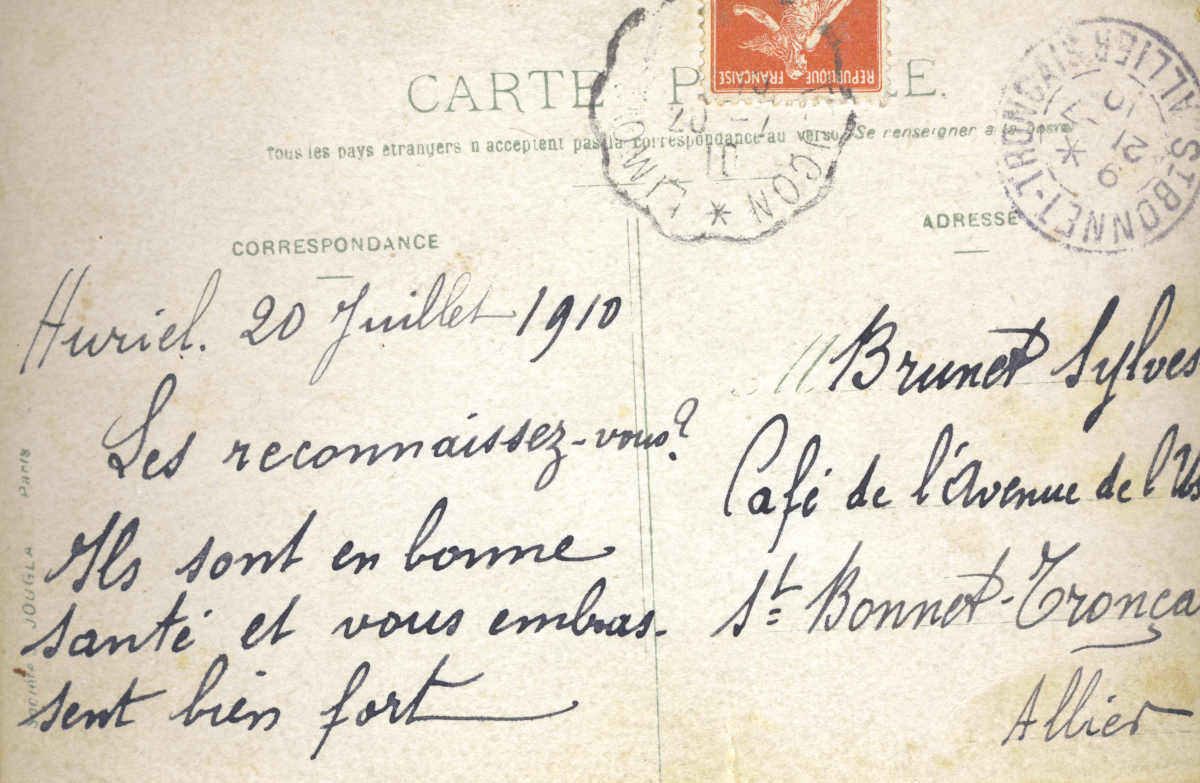 CARTE
Tous les pays étrangers n'acceptent pas la correspondance au verso (Se renseigner à la poste)
REPUBLIQUE FRANÇAISE
20 - 7
10
ST BONNET-TRONÇAIS ALLIER
CORRESPONDANCE
ADRESSE
Huriel. 20 Juillet 1910
Les reconnaissez-vous?
Ils sont en bonne
santé et vous embras-
sent bien fort
Brunet Sylves
Café de l'Avenue de l'Us
St Bonnet-Tronça
Allier
Société JOUGLA Paris